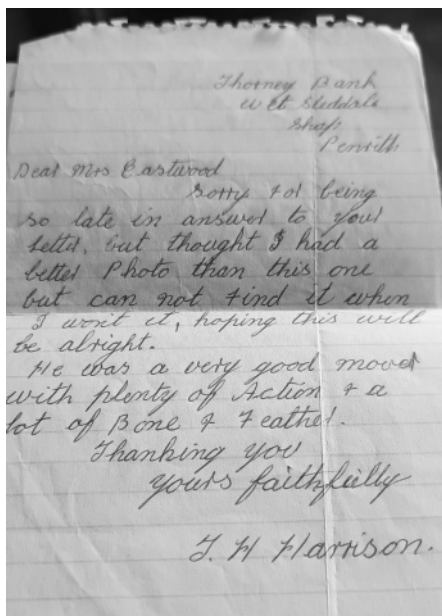 Thorney Bank
Wet Sleddale
Shap
Penrith
Dear Mrs Eastwood
Sorry for being
so late in answer to your
letter, but thought I had a
better Photo than this one
but can not find it when
I won't it, hoping this will
be alright.
He was a very good mover
with plenty of Action & a
lot of Bone & Feather.
Thanking you
yours faithfully
J. H Harrison.